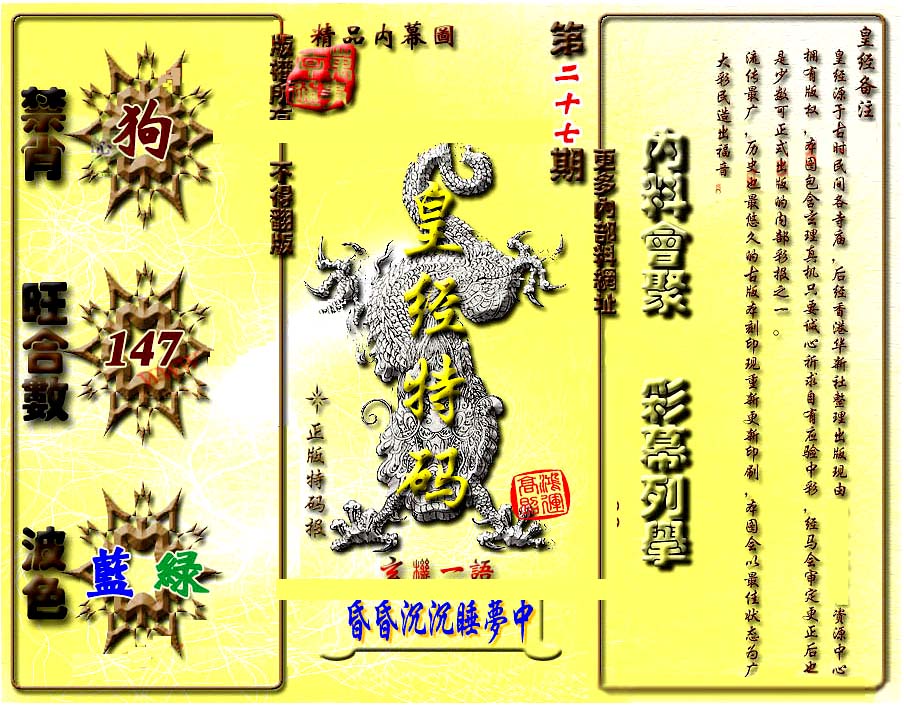 皇经备注
皇经源于古时民间各寺庙,后经香港华新社整理出版现由
资源中心
拥有版权,本图包含玄理真机只要诚心祈求自有应验中彩,经马会审定更正后也
是少数可正式出版的内部彩报之一。
流传最广,历史也最悠久的古版本刻印现重新更新印刷,本图会以最佳状态为广
大彩民造出福音
內料會聚
彩幕列舉
更多內部料網址
第二十七期
精品内幕圖
版權所有
不得翻版
皇经特码
正版特码报
鴻運高照
玄機一語
昏昏沉沉睡夢中
禁肖
狗
旺合數
147
波色
藍 綠